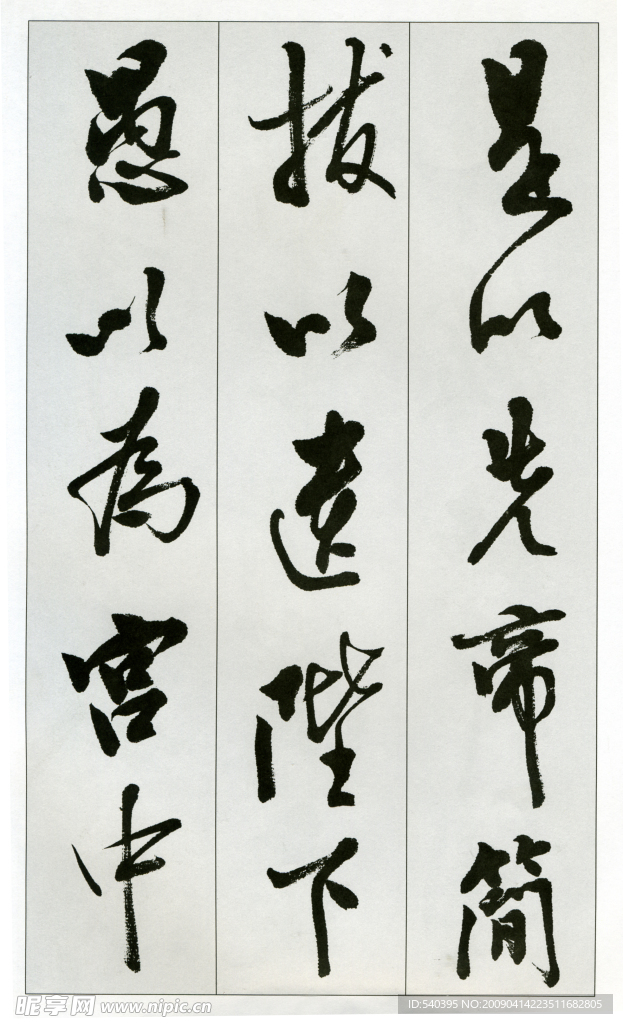 是以先帝简
拔以遗陛下
愚以为宫中
昵享网 www.nipic.cn
ID:540395 NO:20090414223511682805